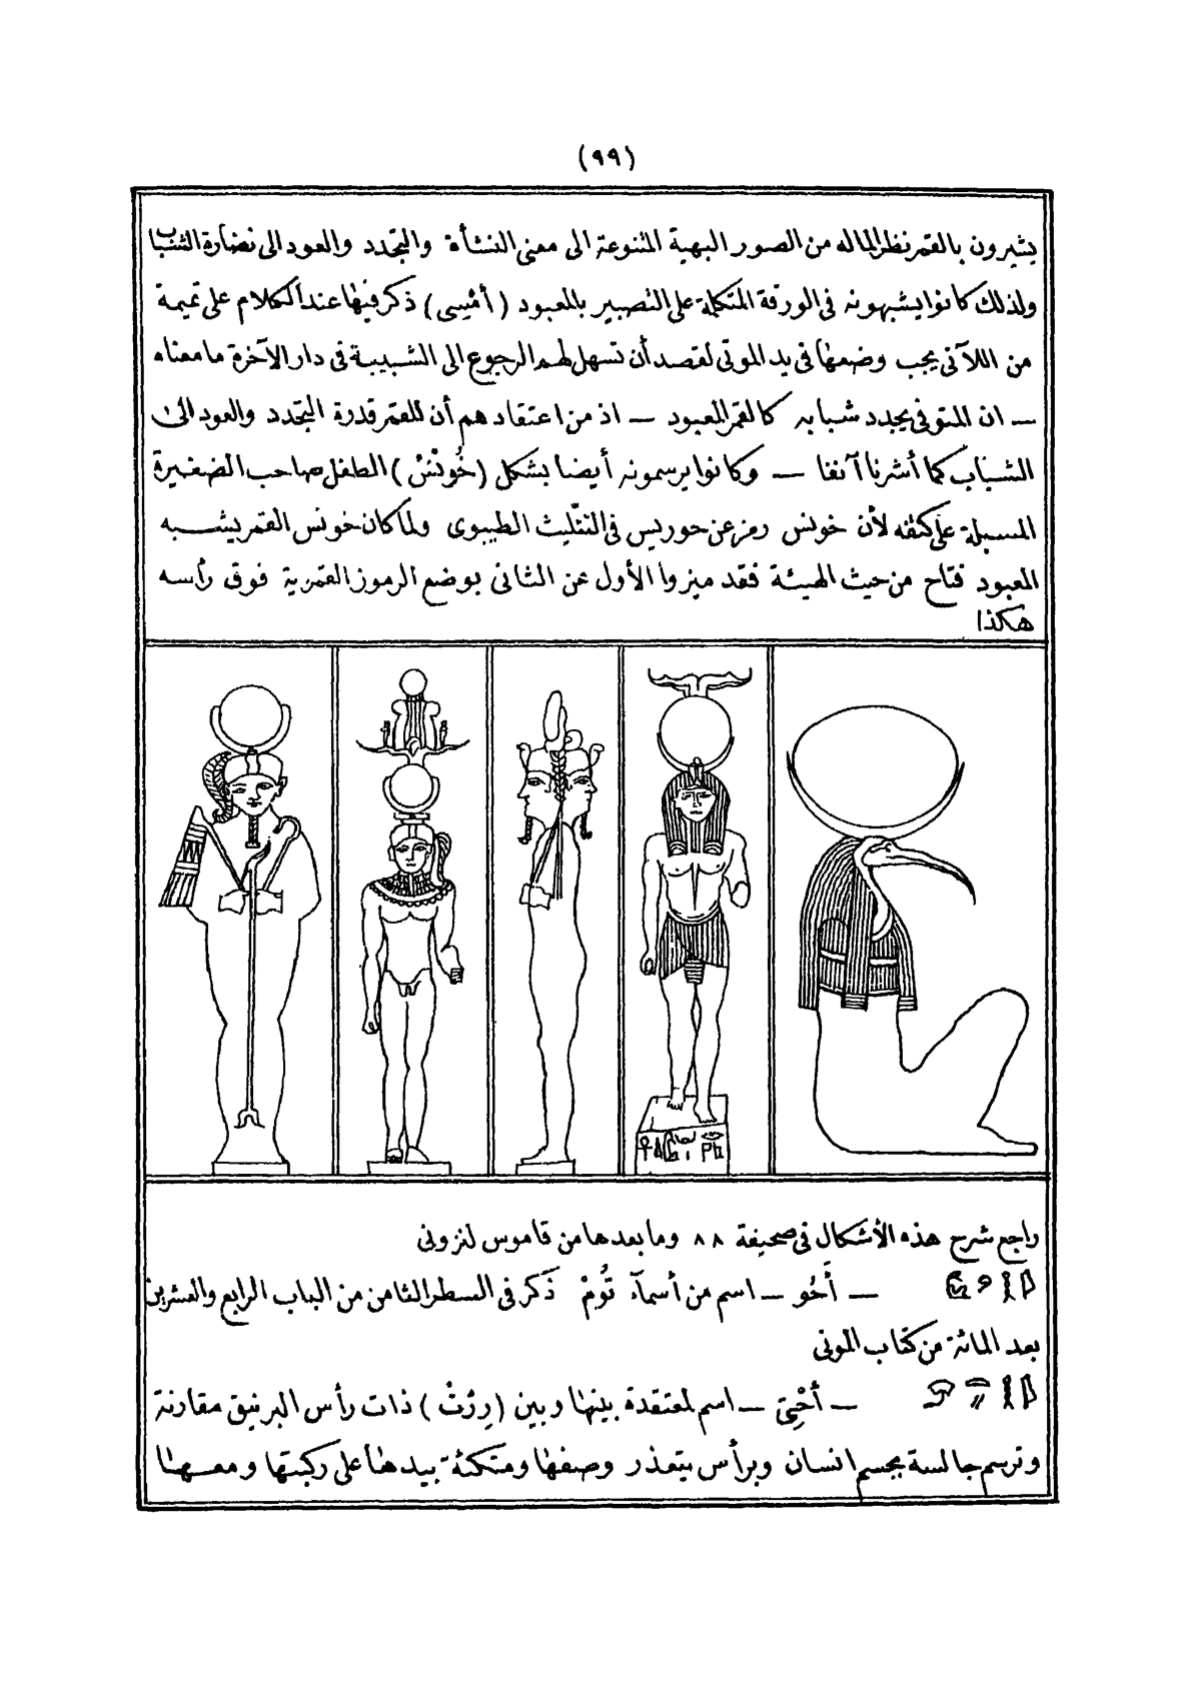 (٩٩)
يشيرون بالقمر نظرا لماله من الصور البهية المتنوعة الى معنى النشأة والتجدد والعود الى نضارة الشباب
ولذلك كانوا يشبهونه فى الورقة المتكلمة على التصبير بالمعبود (أمْسِى) ذكر فيها عند الكلام على تميمة
من اللآتى يجب وضعها فى يد الموتى لقصد أن تسهل لهم الرجوع الى الشبيبة فى دار الآخرة ما معناه
— ان المتوفى يجدد شبابه كالقمر المعبود — اذ من اعتقادهم أن للقمر قدرة التجدد والعود الى
الشباب كما أشرنا آنفا — وكانوا يرسمونه أيضا بشكل (خُونْسْ) الطفل صاحب الضفيرة
المسبلة على كتفه لأن خونس رمز عن حوريس فى التثليث الطيبوى ولما كان خونس القمر يشبه
المعبود فتاح من حيث الهيئة فقد ميزوا الأول عن الثانى بوضع الرموز القمرية فوق رأسه
هكذا
راجع شرح هذه الأشكال فى صحيفة ٨٨ وما بعدها من قاموس لنزونى
— أَحُو — اسم من أسمآء تُومْ ذكر فى السطر الثامن من الباب الرابع والعشرين
بعد المائة من كتاب الموتى
— أَحْتِى — اسم لمعتقدة بينها وبين (رِرْتْ) ذات رأس البرنيق مقارنة
وترسم جالسة بجسم انسان وبرأس يتعذر وصفها ومتكئة بيدها على ركبتها ومعها